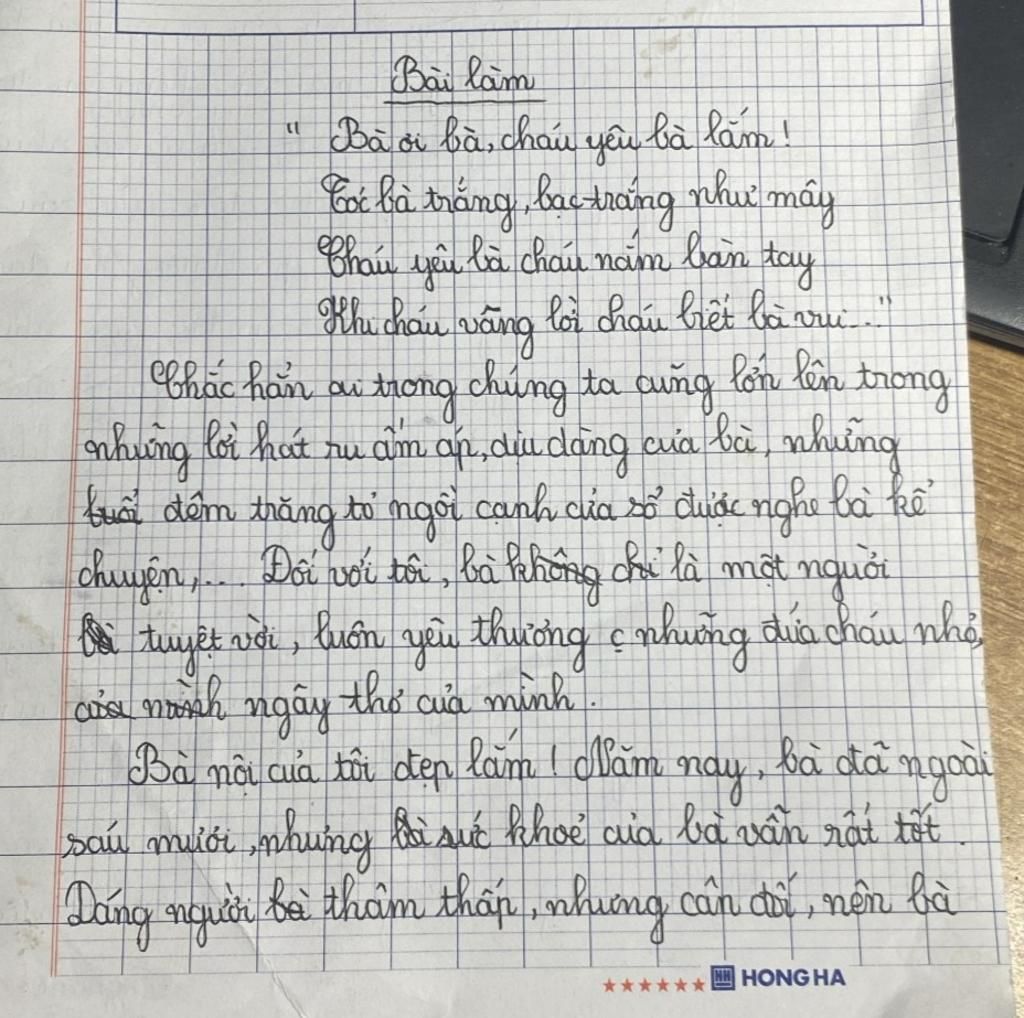 Bài làm
" Bà ơi bà, cháu yêu bà lắm!
Tóc bà trắng, bạc trắng như mây
Cháu yêu bà cháu nắm bàn tay
Khi cháu vâng lời cháu biết bà vui..."
Chắc hẳn ai trong chúng ta cũng lớn lên trong
những lời hát ru ấm áp, dịu dàng của bà, những
buổi đêm trăng tỏ ngồi cạnh cửa sổ được nghe bà kể
chuyện,... Đối với tôi, bà không chỉ là một người
bà tuyệt vời, luôn yêu thương những đứa cháu nhỏ,
của mình ngây thơ của mình.
Bà nội của tôi đẹp lắm! Năm nay, bà đã ngoài
sáu mươi, nhưng sức khoẻ của bà vẫn rất tốt.
Dáng người bà thâm thấp, nhưng cân đối, nên bà
HONG HA